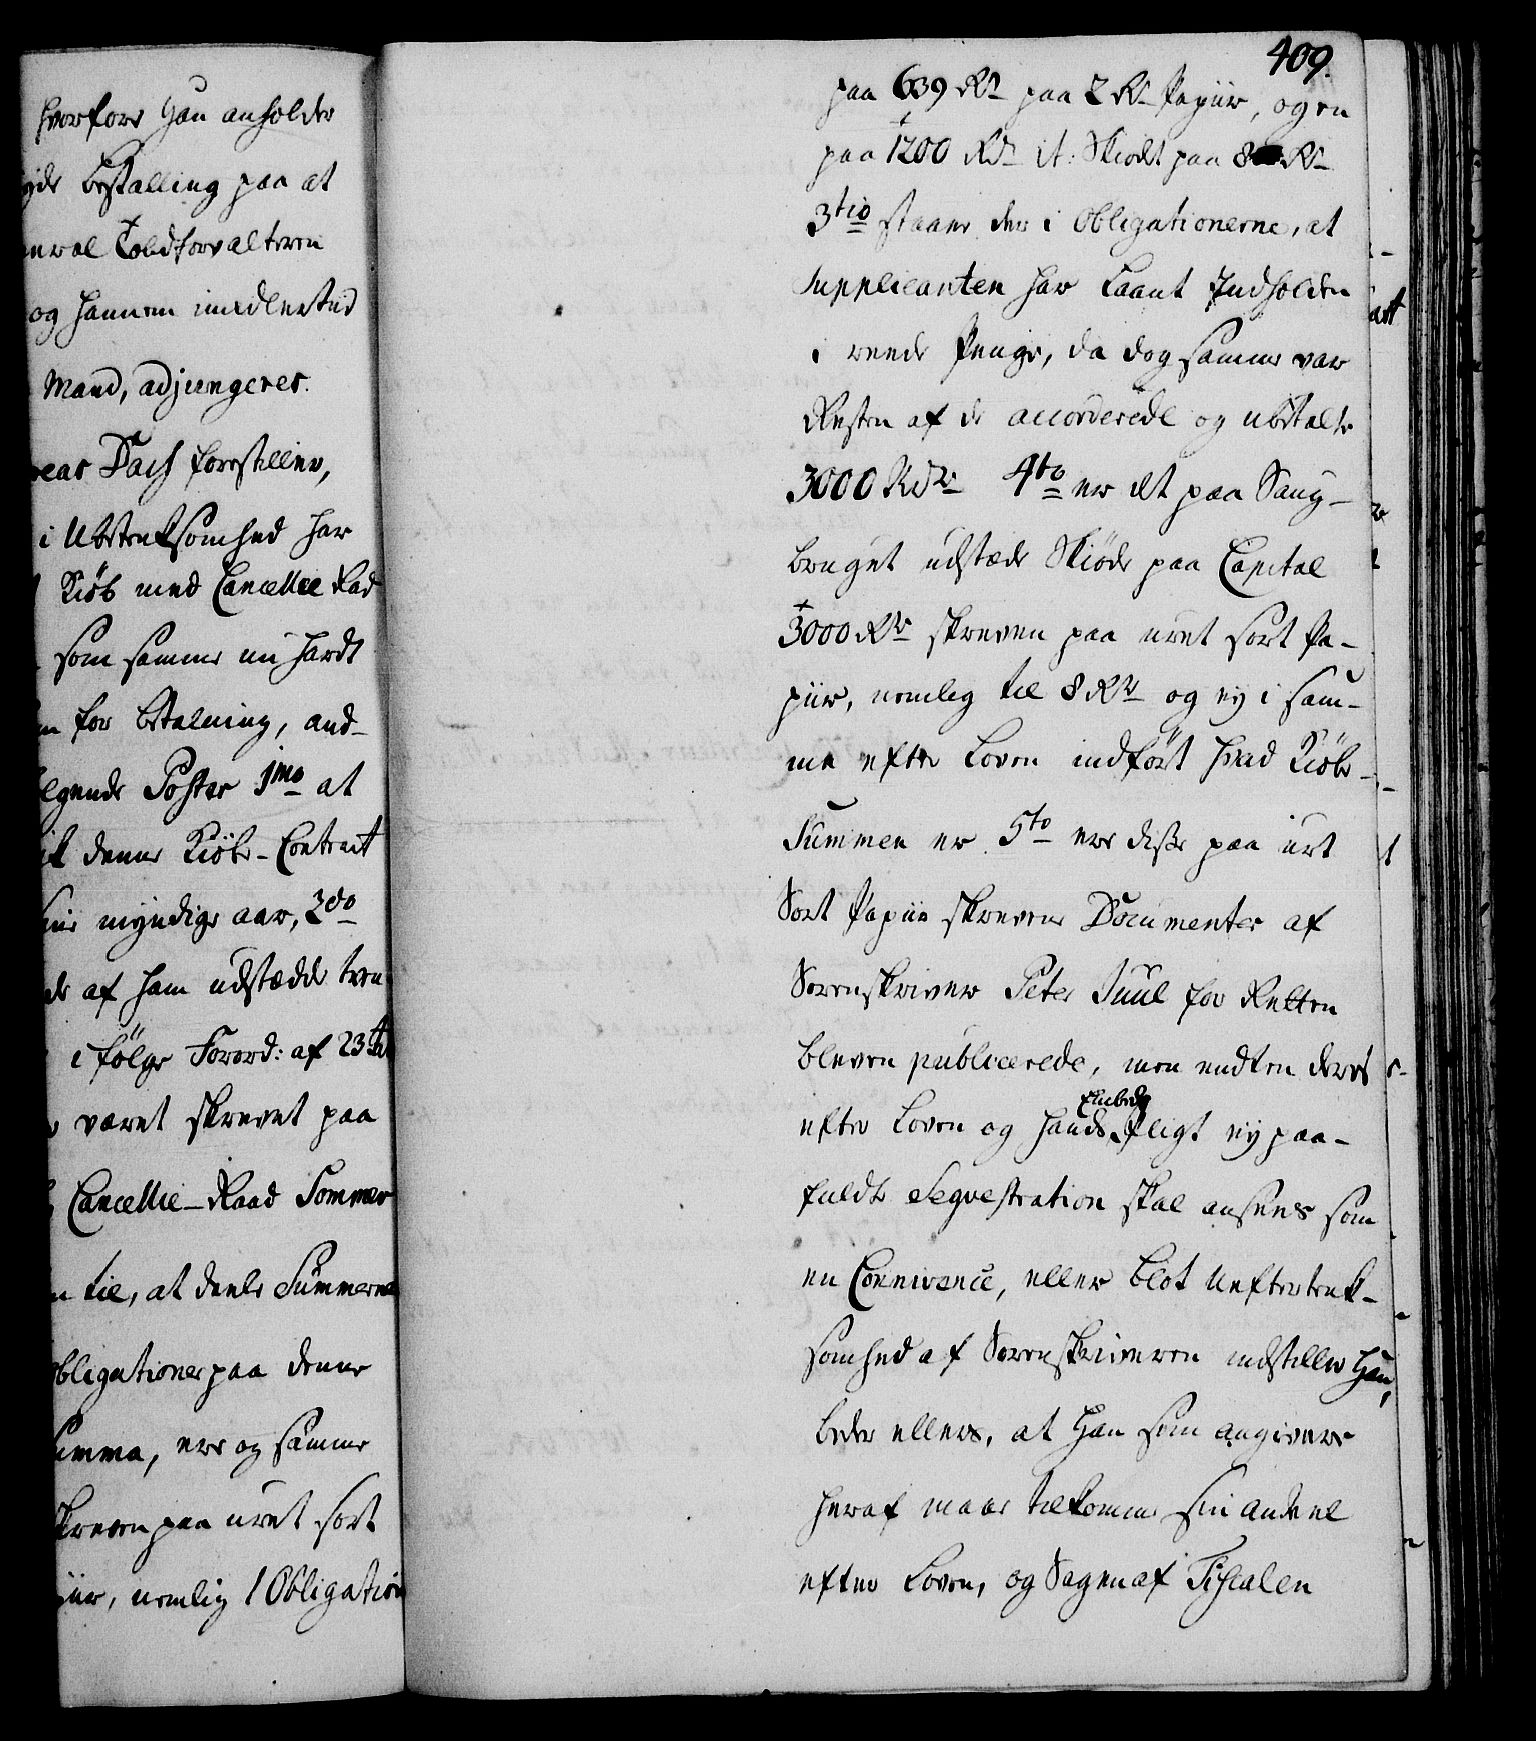 hvorfore Han anholder
Bestalling paa at
Toldforvalteren
og hannem imidlertid
Mand, adjungeres.
Dass forestiller,
i Ubetenksomhed har
Kiøb med Cancellie Raad
som samme nu hardt
for Betalning, and-
Poster 1mo at
denne Kiøbe-Contract
myndige aar, 2do
af ham udstædde tven
i følge Forord: af 23de
været skrevet paa
Cancellie-Raad Sommer
til, at deele Summerne
Obligationer paa denne
Summa, ere og samme
skreven paa uret sort
nemlig 1 Obligation
409.
paa 639 Rdr paa 2 Rdr Papiir, og en
paa 1200 Rdr it: Skiødet paa 8 Rdr
3tio staaer der i Obligationerne, at
Supplicanten har laant Indholden
i reede Penge, da dog samme var
Resten af de accorderede og ubetalte
3000 Rdr 4to er det paa Saug-
bruget udstæde Skiøde paa Capital
3000 Rdr skreven paa uret sort Pa-
piir, nemlig til 8 Rdr og ey i sam-
me efter Loven indført hvad Kiøbe-
Summen er 5to ere disse paa uret
Sort Papiir skrevene Documenter af
Sorenskriver Peter Juul for Retten
bleven publicerede, men endten deres
efter Loven og hands Embeds Pligt ey paa-
fuldte Seqvestration skal ansees som
en Connivence, eller blot Uefterteenk-
somhed af Sorenskriveren indstiller Han,
beder ellers, at Han som angivere
heraf maae tilkomme sin andeel
efter Loven, og Sagen af Fiscalen